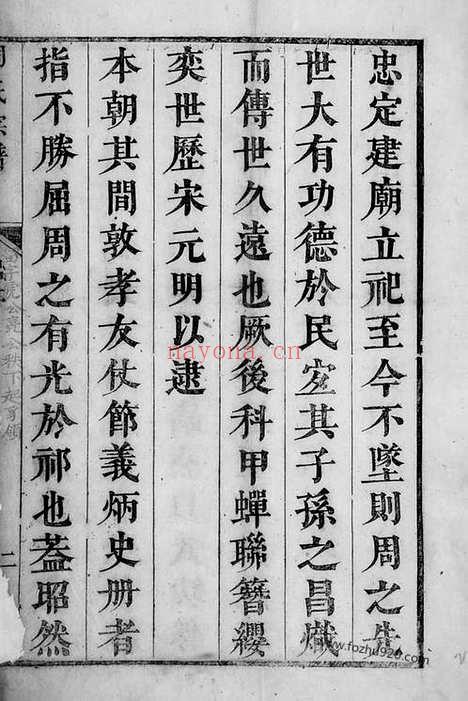 忠定建廟立祀至今不墜則周之先
世大有功德於民宐其子孫之昌熾
而傳世久遠也厥後科甲蟬聯簪纓
奕世歷宋元明以逮
本朝其間敦孝友仗節義炳史册者
指不勝屈周之有光於祁也蓋昭然
周氏宗譜
二
nayona.cn
www.fozhu920.com